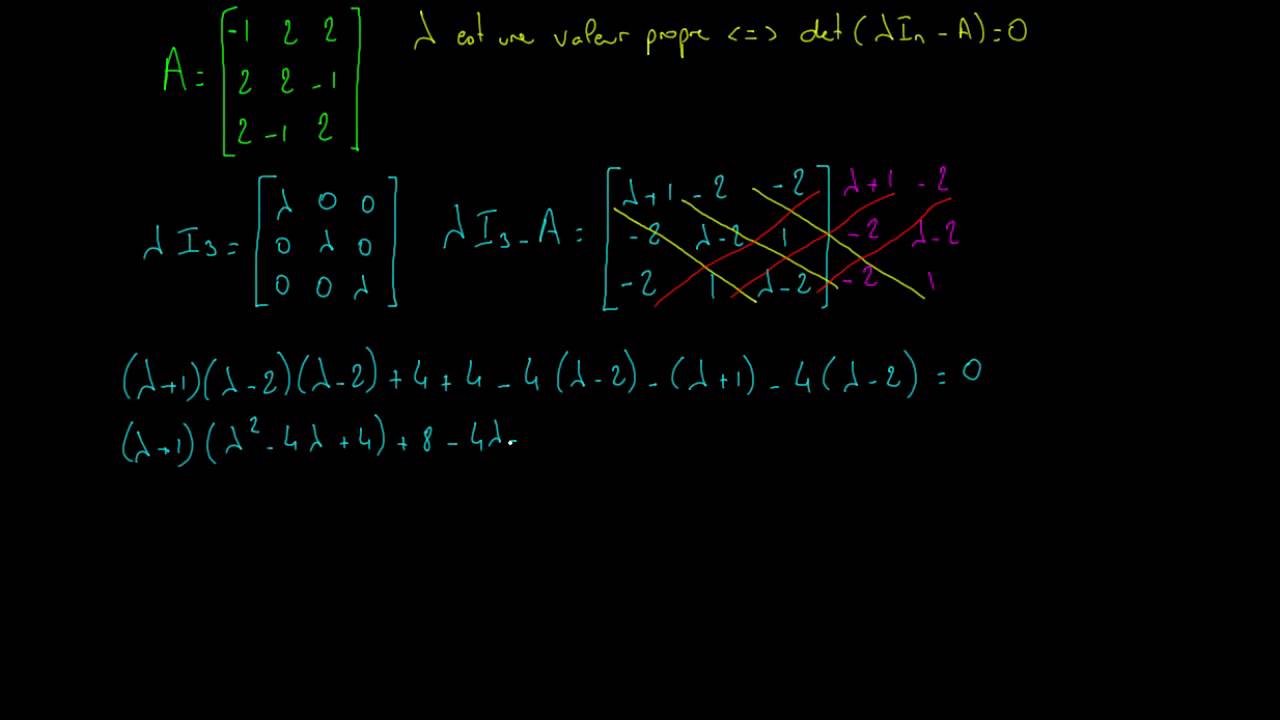 A = [-1 2 2
2 2 -1
2 -1 2]
λ est une valeur propre <=> det (λIn - A) = 0
λI3 = [λ 0 0
0 λ 0
0 0 λ]
λI3 - A = [λ+1 -2 -2] λ+1 -2
-2 λ-2 1 -2 λ-2
-2 1 λ-2 -2 1
(λ+1)(λ-2)(λ-2) + 4 + 4 - 4(λ-2) - (λ+1) - 4(λ-2) = 0
(λ+1)(λ² - 4λ + 4) + 8 - 4λ